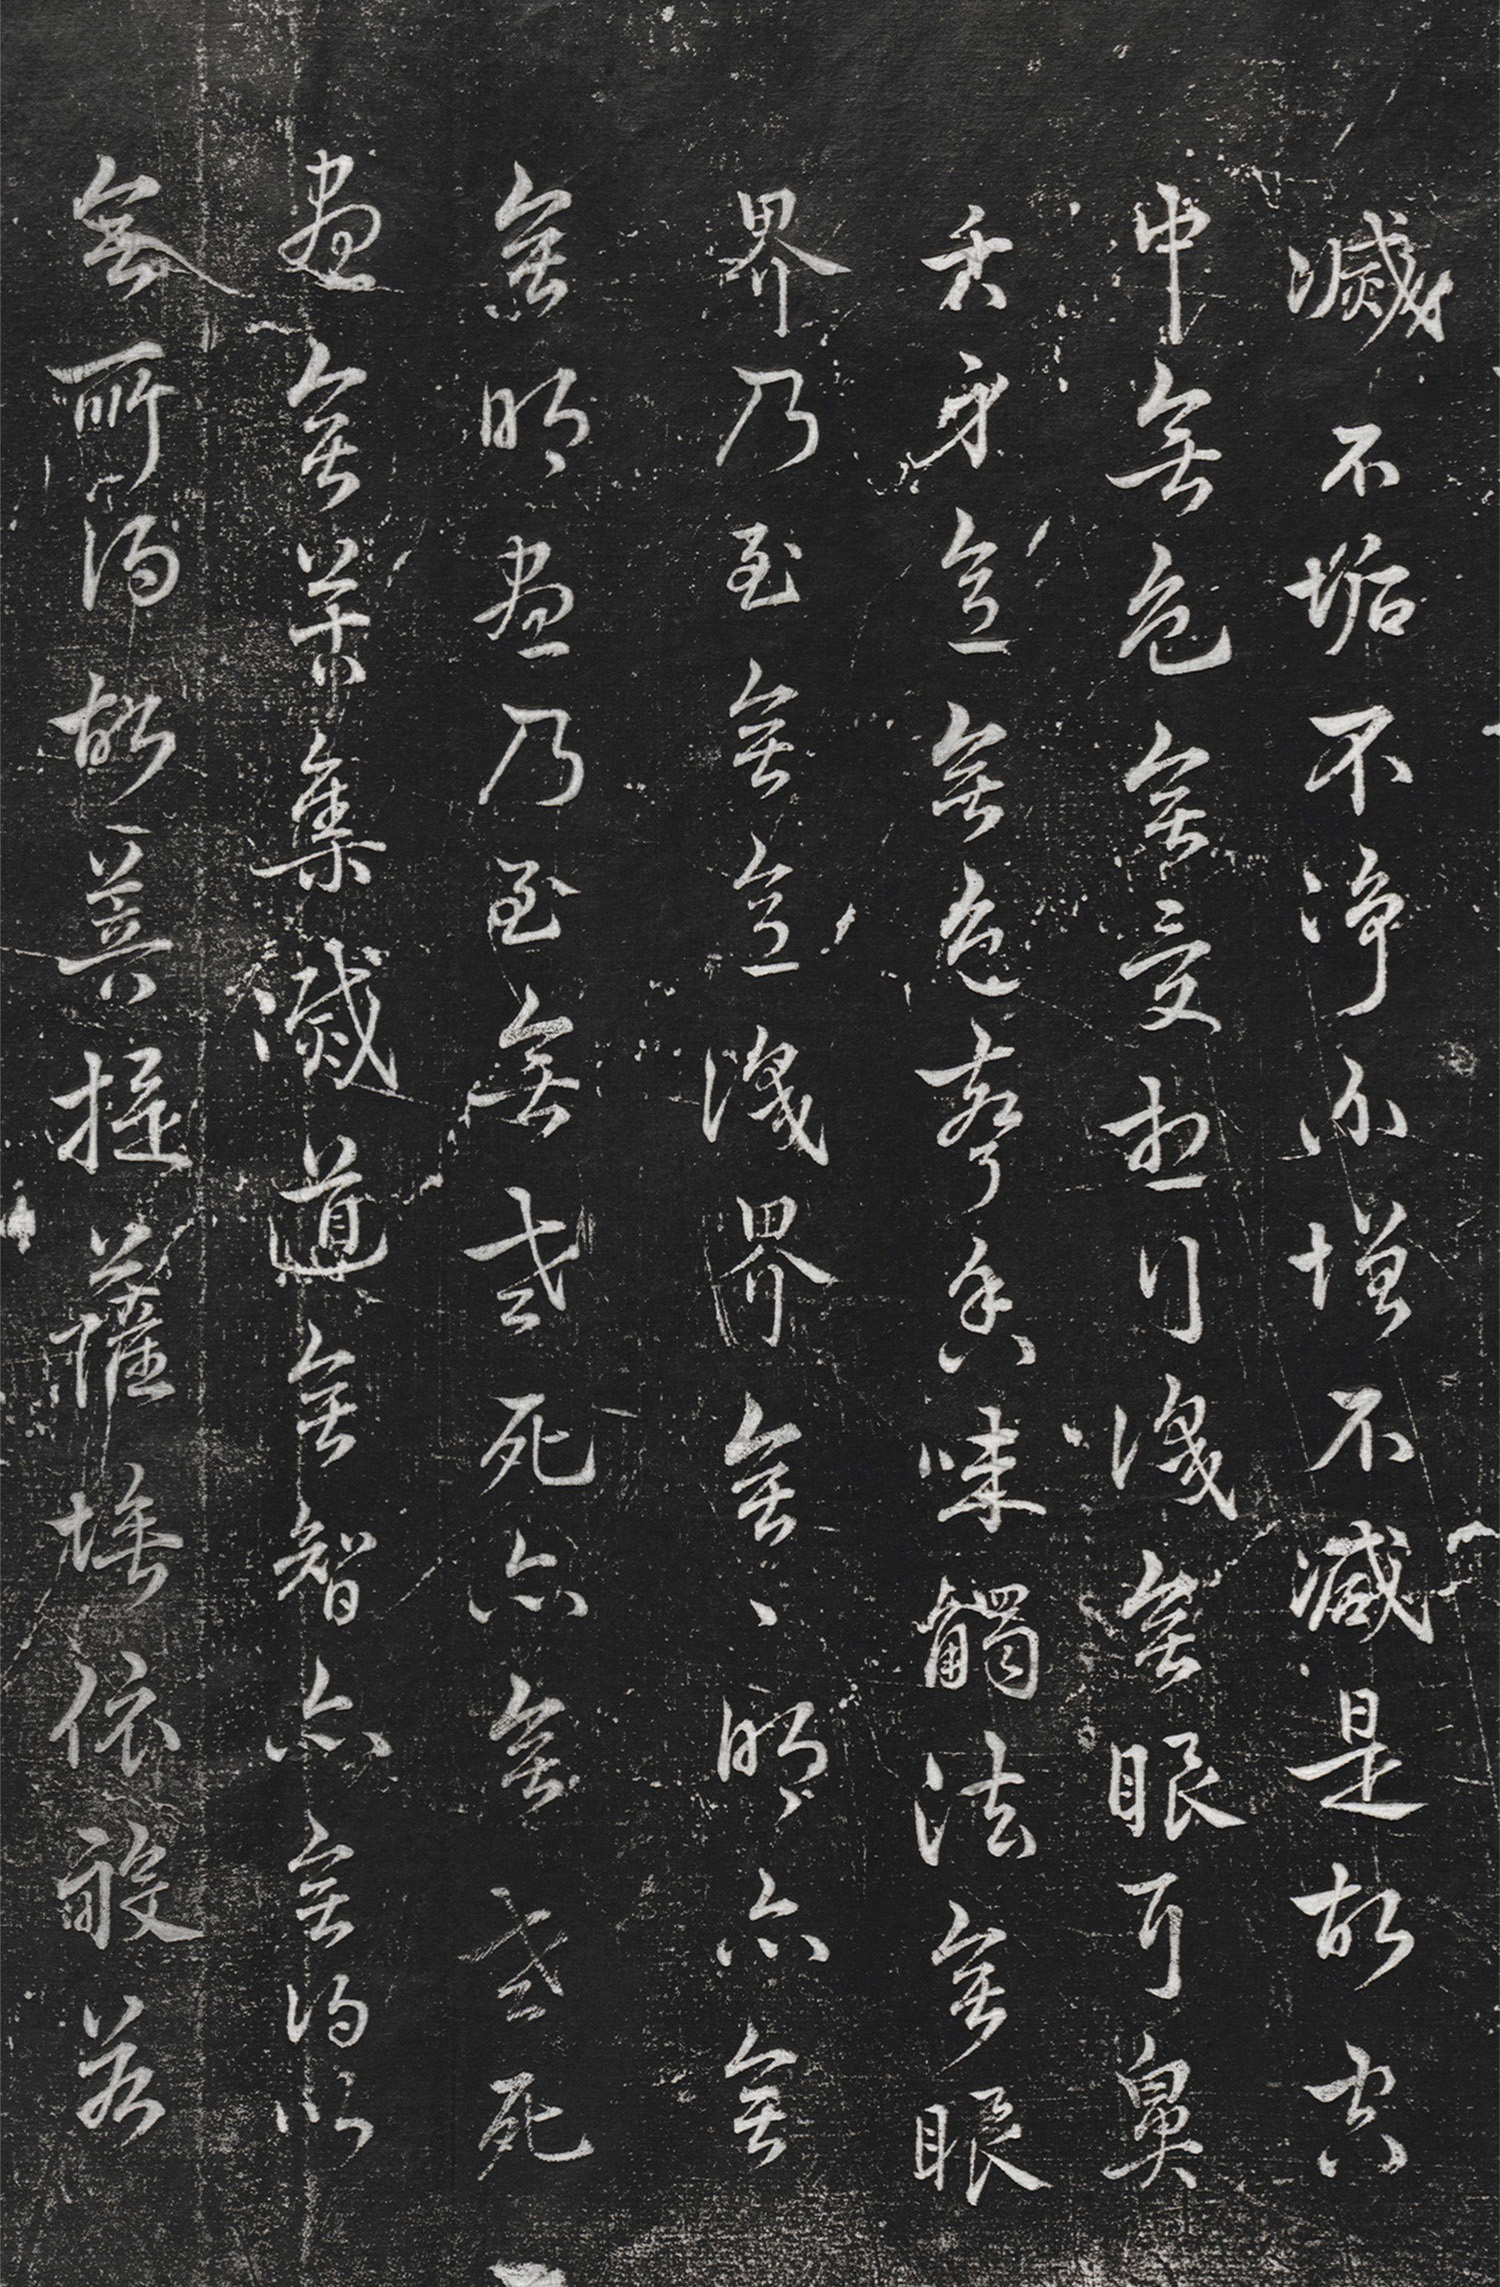 滅不垢不淨不增不減是故空
中無色無受想行識無眼耳鼻
舌身意無色聲香味觸法無眼
界乃至無意識界無、明亦無
無明盡乃至無老死亦無老死
盡無苦集滅道無智亦無得以
無所得故菩提薩埵依般若